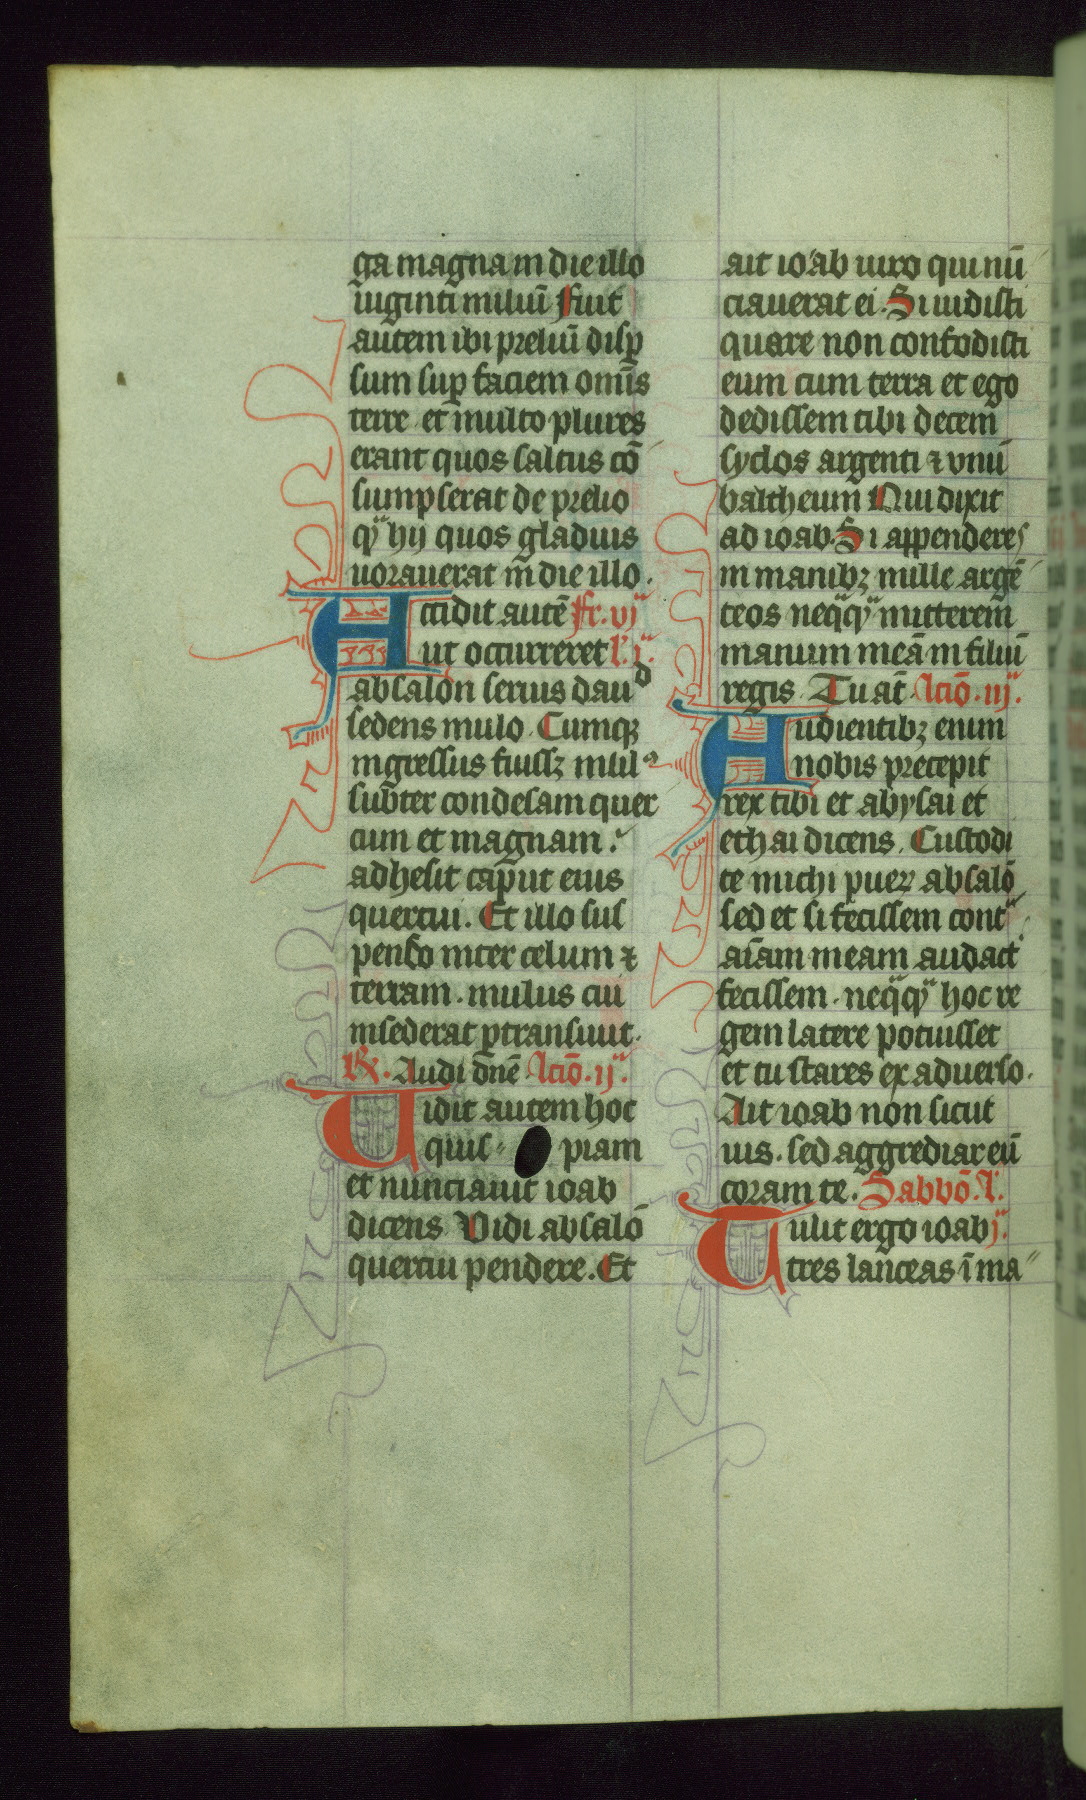 ga magna in die illo
uiginti miliū Fuit
autem ibi preliū disp̄
sum sup̄ faciem om̄is
terre et multo plures
erant quos saltus cō
sumpserat de prelio
qͣ hij quos gladius
uorauerat in die illo.
Accidit autē Fr. vjͣ
ut occurreret l'. jͣ.
absalon seruis dauᵈ
sedens mulo. Cumqꝫ
ingressus fuissꝫ mul⁹
subter condesam quer
cum et magnam.
adhesit caput eius
quercui. Et illo sus
penso inter celum ⁊
terram. mulus cui
insederat ꝑtransiuit.
R. Audi dn̄e Lctiō. ijͣ.
Uidit autem hoc
quis piam
et nunciauit ioab
dicens Vidi absalō
quercui pendere. Et
ait ioab uiro qui nū
ciauerat ei. Si uidisti
quare non confodisti
eum cum terra et ego
dedissem tibi decem
syclos argenti ⁊ vnū
baltheum Qui dixit
ad ioab. Si appenderes
in manibꝫ mille argē
teos neqͣqͣ mitterem
manum meā in filiū
regis. Tu aūt. Lctiō. iijͣ.
Audientibꝫ enim
nobis precepit
rex tibi et abysai et
ethai dicens. Custodi
te michi pueꝝ absalō
sed et si fecissem contͣ
aīam meam audact'
fecissem. neqͣqͣ hoc re
gem latere potuisset
et tu stares ex aduerso.
Ait ioab non sicut
uis. sed aggrediar eū
coram te. Sabbō. l'.
Tulit ergo ioab jͣ.
tres lanceas ī ma